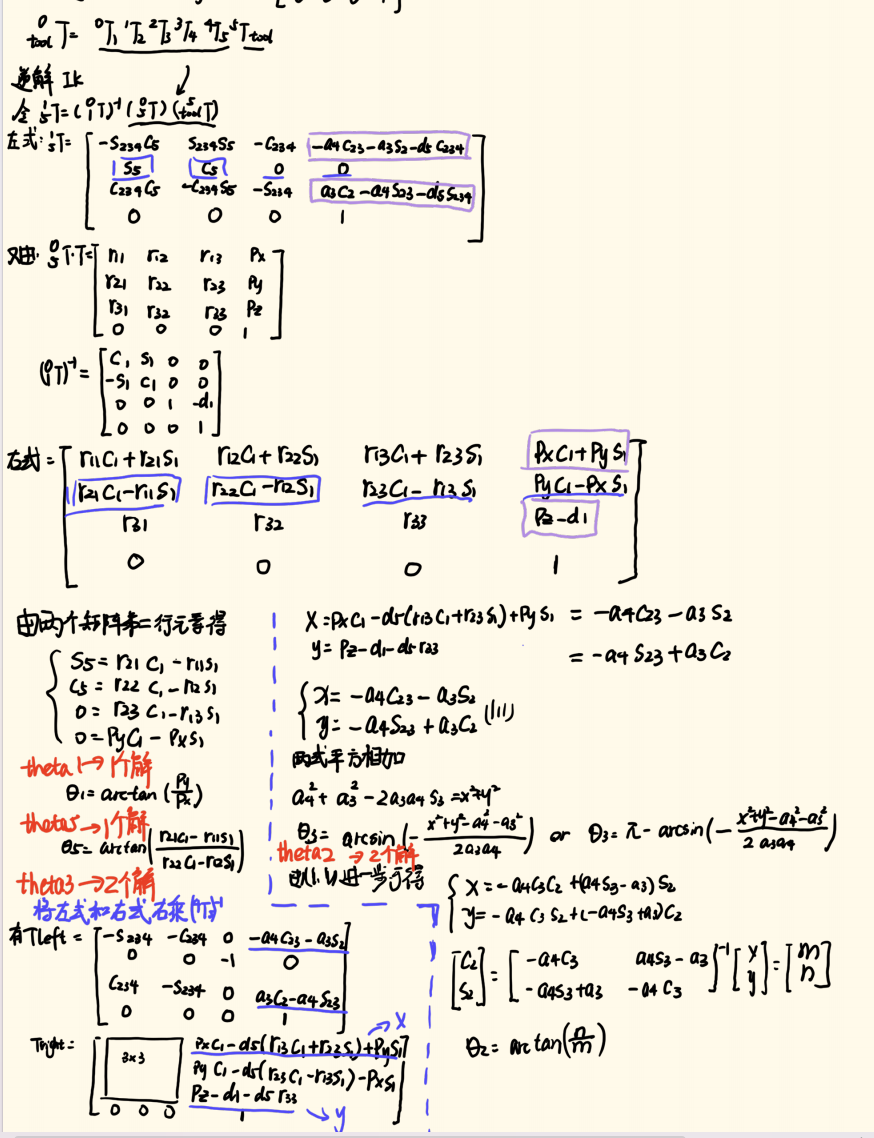 ⁰_tool T = ⁰T₁ ¹T₂ ²T₃ ³T₄ ⁴T₅ ⁵T_tool
逆解 Ik
令 ¹₅T=(⁰₁T)⁻¹(⁰₅T)(⁵_toolT)
左式: ¹₅T=
-S₂₃₄C₅ S₂₃₄S₅ -C₂₃₄ -a₄C₂₃-a₃S₂-d₅C₂₃₄
S₅ C₅ 0 0
C₂₃₄C₅ -C₂₃₄S₅ -S₂₃₄ a₃C₂-a₄S₂₃-d₅S₂₃₄
0 0 0 1
又由: ⁰₅T·T=
r₁₁ r₁₂ r₁₃ Px
r₂₁ r₂₂ r₂₃ Py
r₃₁ r₃₂ r₃₃ Pz
0 0 0 1
(⁰₁T)⁻¹=
C₁ S₁ 0 0
-S₁ C₁ 0 0
0 0 1 -d₁
0 0 0 1
右式=
r₁₁C₁+r₂₁S₁ r₁₂C₁+r₂₂S₁ r₁₃C₁+r₂₃S₁ PxC₁+PyS₁
r₂₁C₁-r₁₁S₁ r₂₂C₁-r₁₂S₁ r₂₃C₁-r₁₃S₁ PyC₁-PxS₁
r₃₁ r₃₂ r₃₃ Pz-d₁
0 0 0 1
由两个矩阵第二行元素得
S₅=r₂₁C₁-r₁₁S₁
C₅=r₂₂C₁-r₁₂S₁
0=r₂₃C₁-r₁₃S₁
0=PyC₁-PxS₁
theta1→1个解
θ₁=arctan(Py/Px)
theta5→1个解
θ₅=arctan((r₂₁C₁-r₁₁S₁)/(r₂₂C₁-r₁₂S₁))
theta3→2个解
将左式和右式右乘(⁴₅T)⁻¹
有Tleft=
-S₂₃₄ -C₂₃₄ 0 -a₄C₂₃-a₃S₂
0 0 -1 0
C₂₃₄ -S₂₃₄ 0 a₃C₂-a₄S₂₃
0 0 0 1
Tright=
3×3 PxC₁-d₅(r₁₃C₁+r₂₃S₁)+PyS₁ →X
PyC₁-d₅(r₂₃C₁-r₁₃S₁)-PxS₁
Pz-d₁-d₅r₃₃ →y
0 0 0 1
X=PxC₁-d₅(r₁₃C₁+r₂₃S₁)+PyS₁ = -a₄C₂₃-a₃S₂
y=Pz-d₁-d₅r₃₃ = -a₄S₂₃+a₃C₂
x=-a₄C₂₃-a₃S₂
y=-a₄S₂₃+a₃C₂ (1.1)
两式平方相加
a₄²+a₃²-2a₃a₄S₃=x²+y²
θ₃=arcsin(-(x²+y²-a₄²-a₃²)/(2a₃a₄)) or θ₃=π-arcsin(-(x²+y²-a₄²-a₃²)/(2a₃a₄))
theta2→2个解
由(1.1)进一步可得
x=-a₄C₃C₂+(a₄S₃-a₃)S₂
y=-a₄C₃S₂+(-a₄S₃+a₃)C₂
[C₂ S₂]=[-a₄C₃ a₄S₃-a₃
-a₄S₃+a₃ -a₄C₃]⁻¹[x y]=[m n]
θ₂=arctan(n/m)